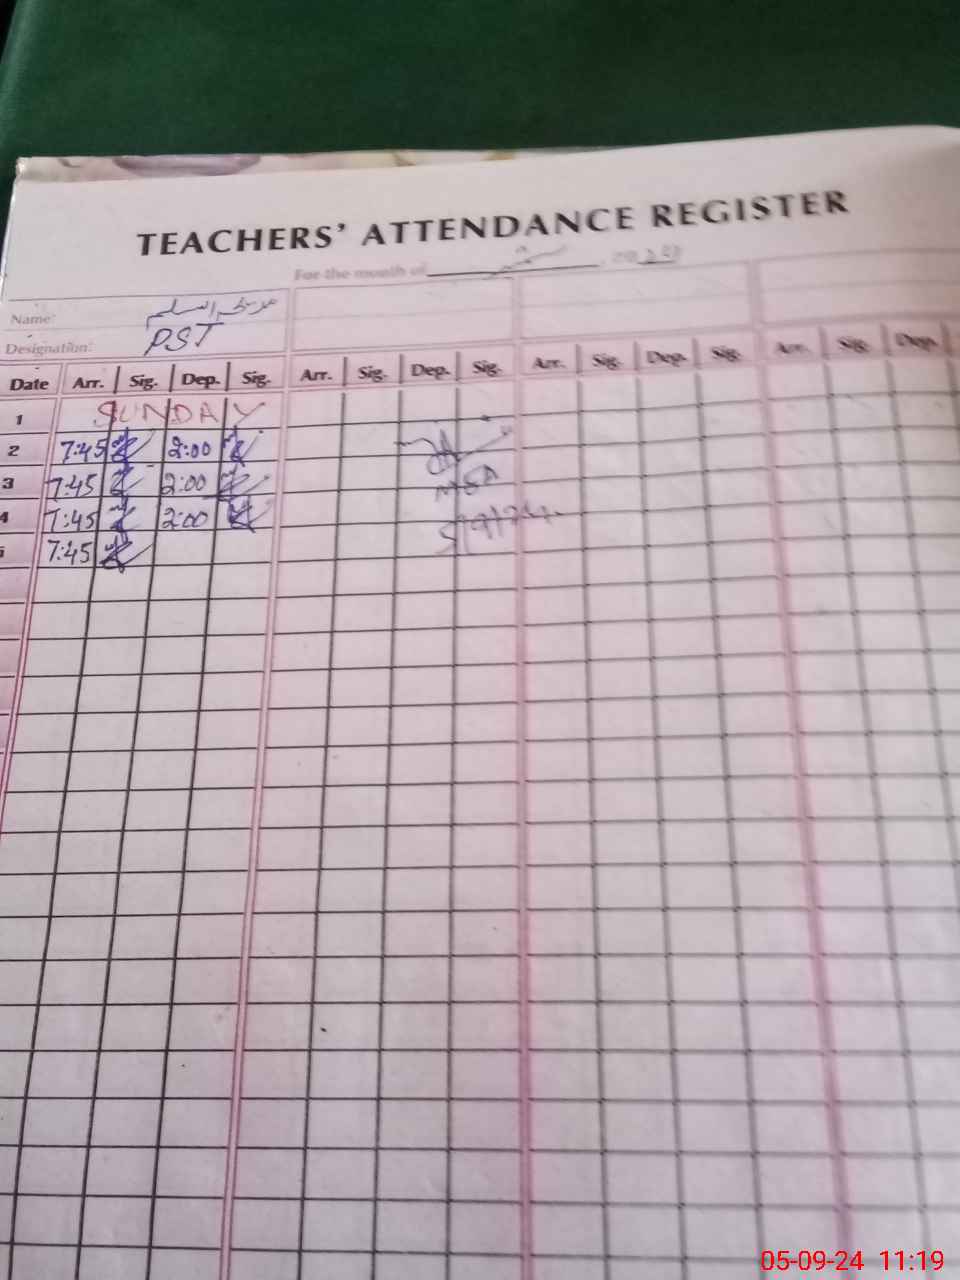 TEACHERS' ATTENDANCE REGISTER
For the month of ستمبر
Name:
Designation: PST
Date Arr. Sig. Dep. Sig. Arr. Sig. Dep. Sig. Arr. Sig. Dep. Sig. Arr. Sig. Dep.
1 SUNDAY
2 7:45 2:00
3 7:45 2:00
MEA
4 7:45 2:00
5/9/24
5 7:45
05-09-24 11:19